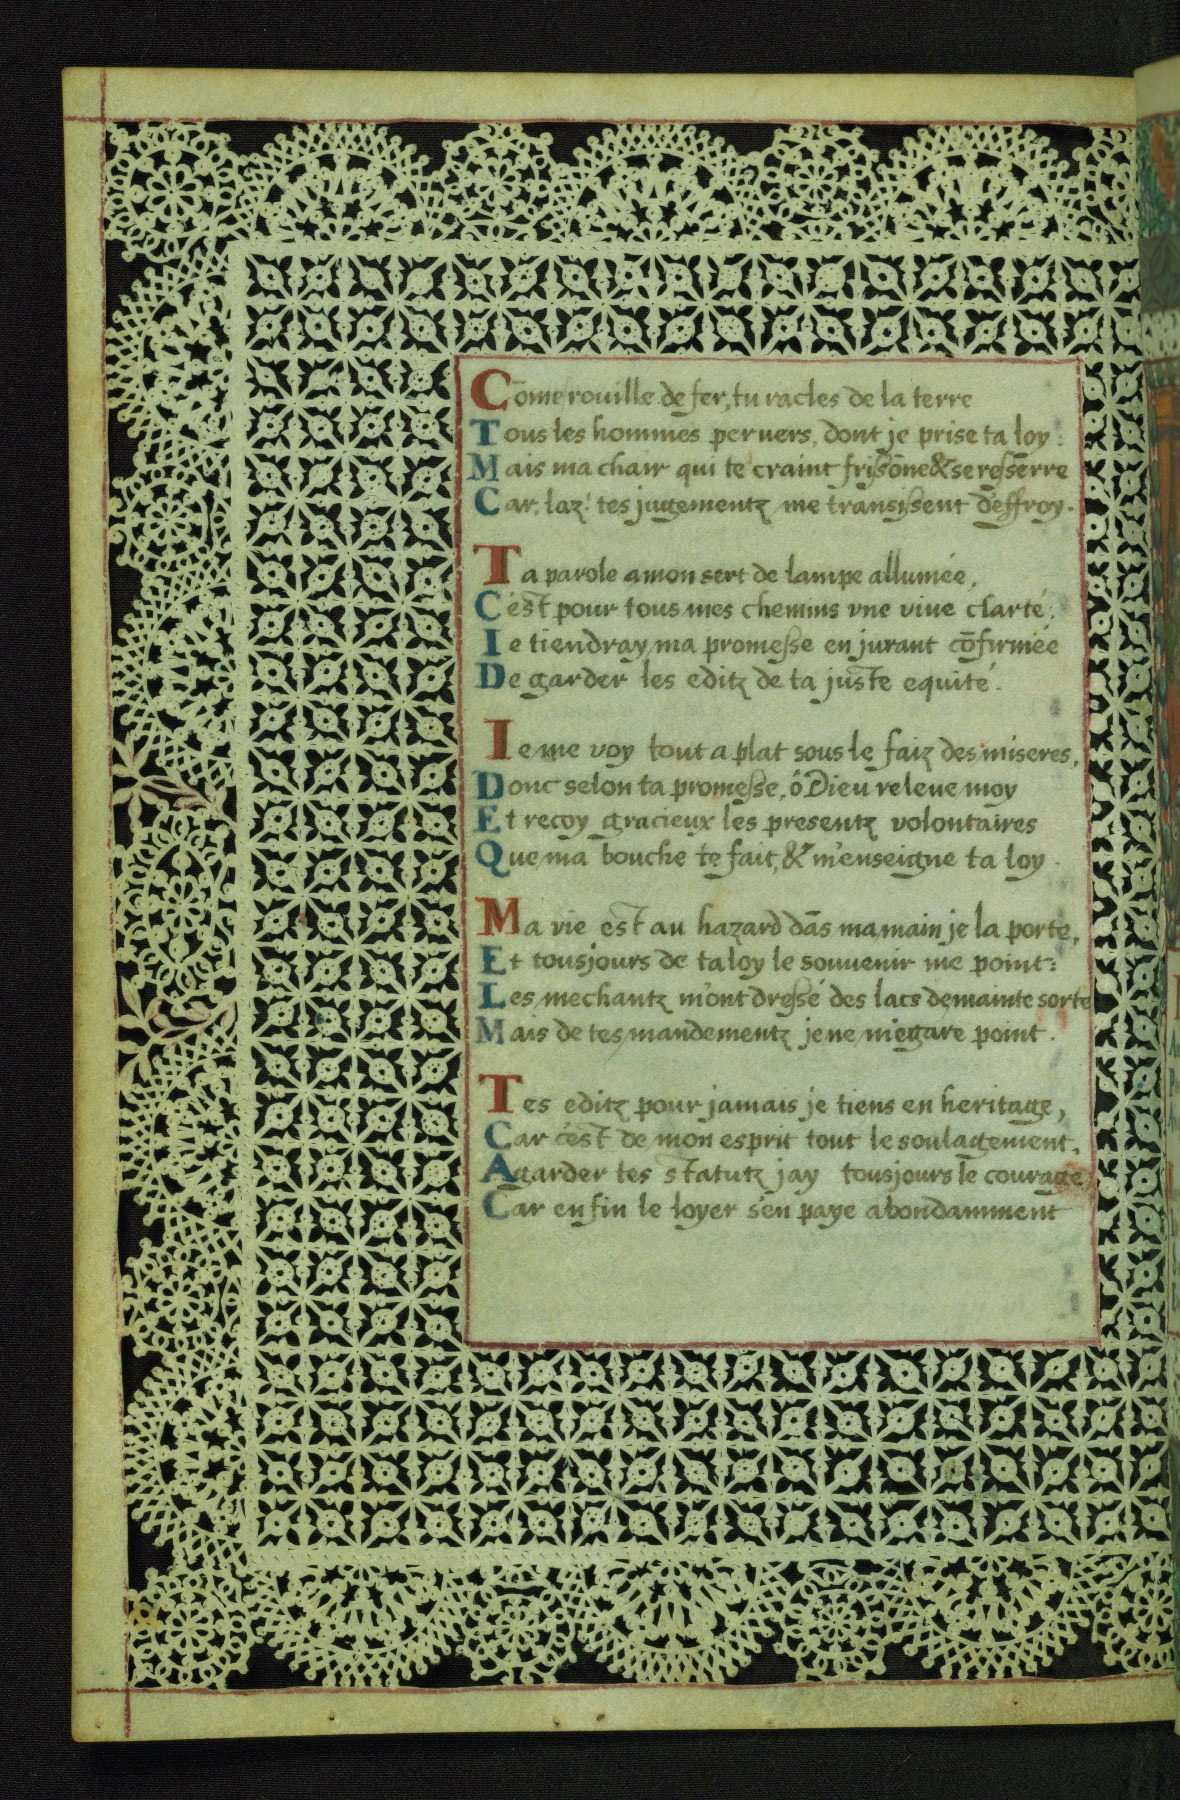 Cōme rouille de fer, tu racles de la terre
Tous les hommes peruers, dont je prise ta loy :
Mais ma chair qui te craint frisōne & se reserre
Car, laz! tes jugementz me transisent d'effroy.
Ta parole a mon sert de lampe allumée,
C'est pour tous mes chemins vne viue clarté:
Ie tiendray ma promesse en jurant cōfirmée
De garder les editz de ta juste equité.
Ie me voy tout a plat sous le faiz des miseres,
Donc selon ta promesse, ô Dieu releue moy
Et recoy gracieux les presentz volontaires
Que ma bouche te fait, & m'enseigne ta loy.
Ma vie est au hazard dās ma main je la porte,
Et tousjours de ta loy le souvenir me point:
Les mechantz m'ont dressé des lacs de mainte sorte
Mais de tes mandementz je ne m'egare point.
Tes editz pour jamais je tiens en heritage,
Car c'est de mon esprit tout le soulagement,
A garder tes statutz jay tousjours le courage
Car en fin le loyer s'en paye abondamment